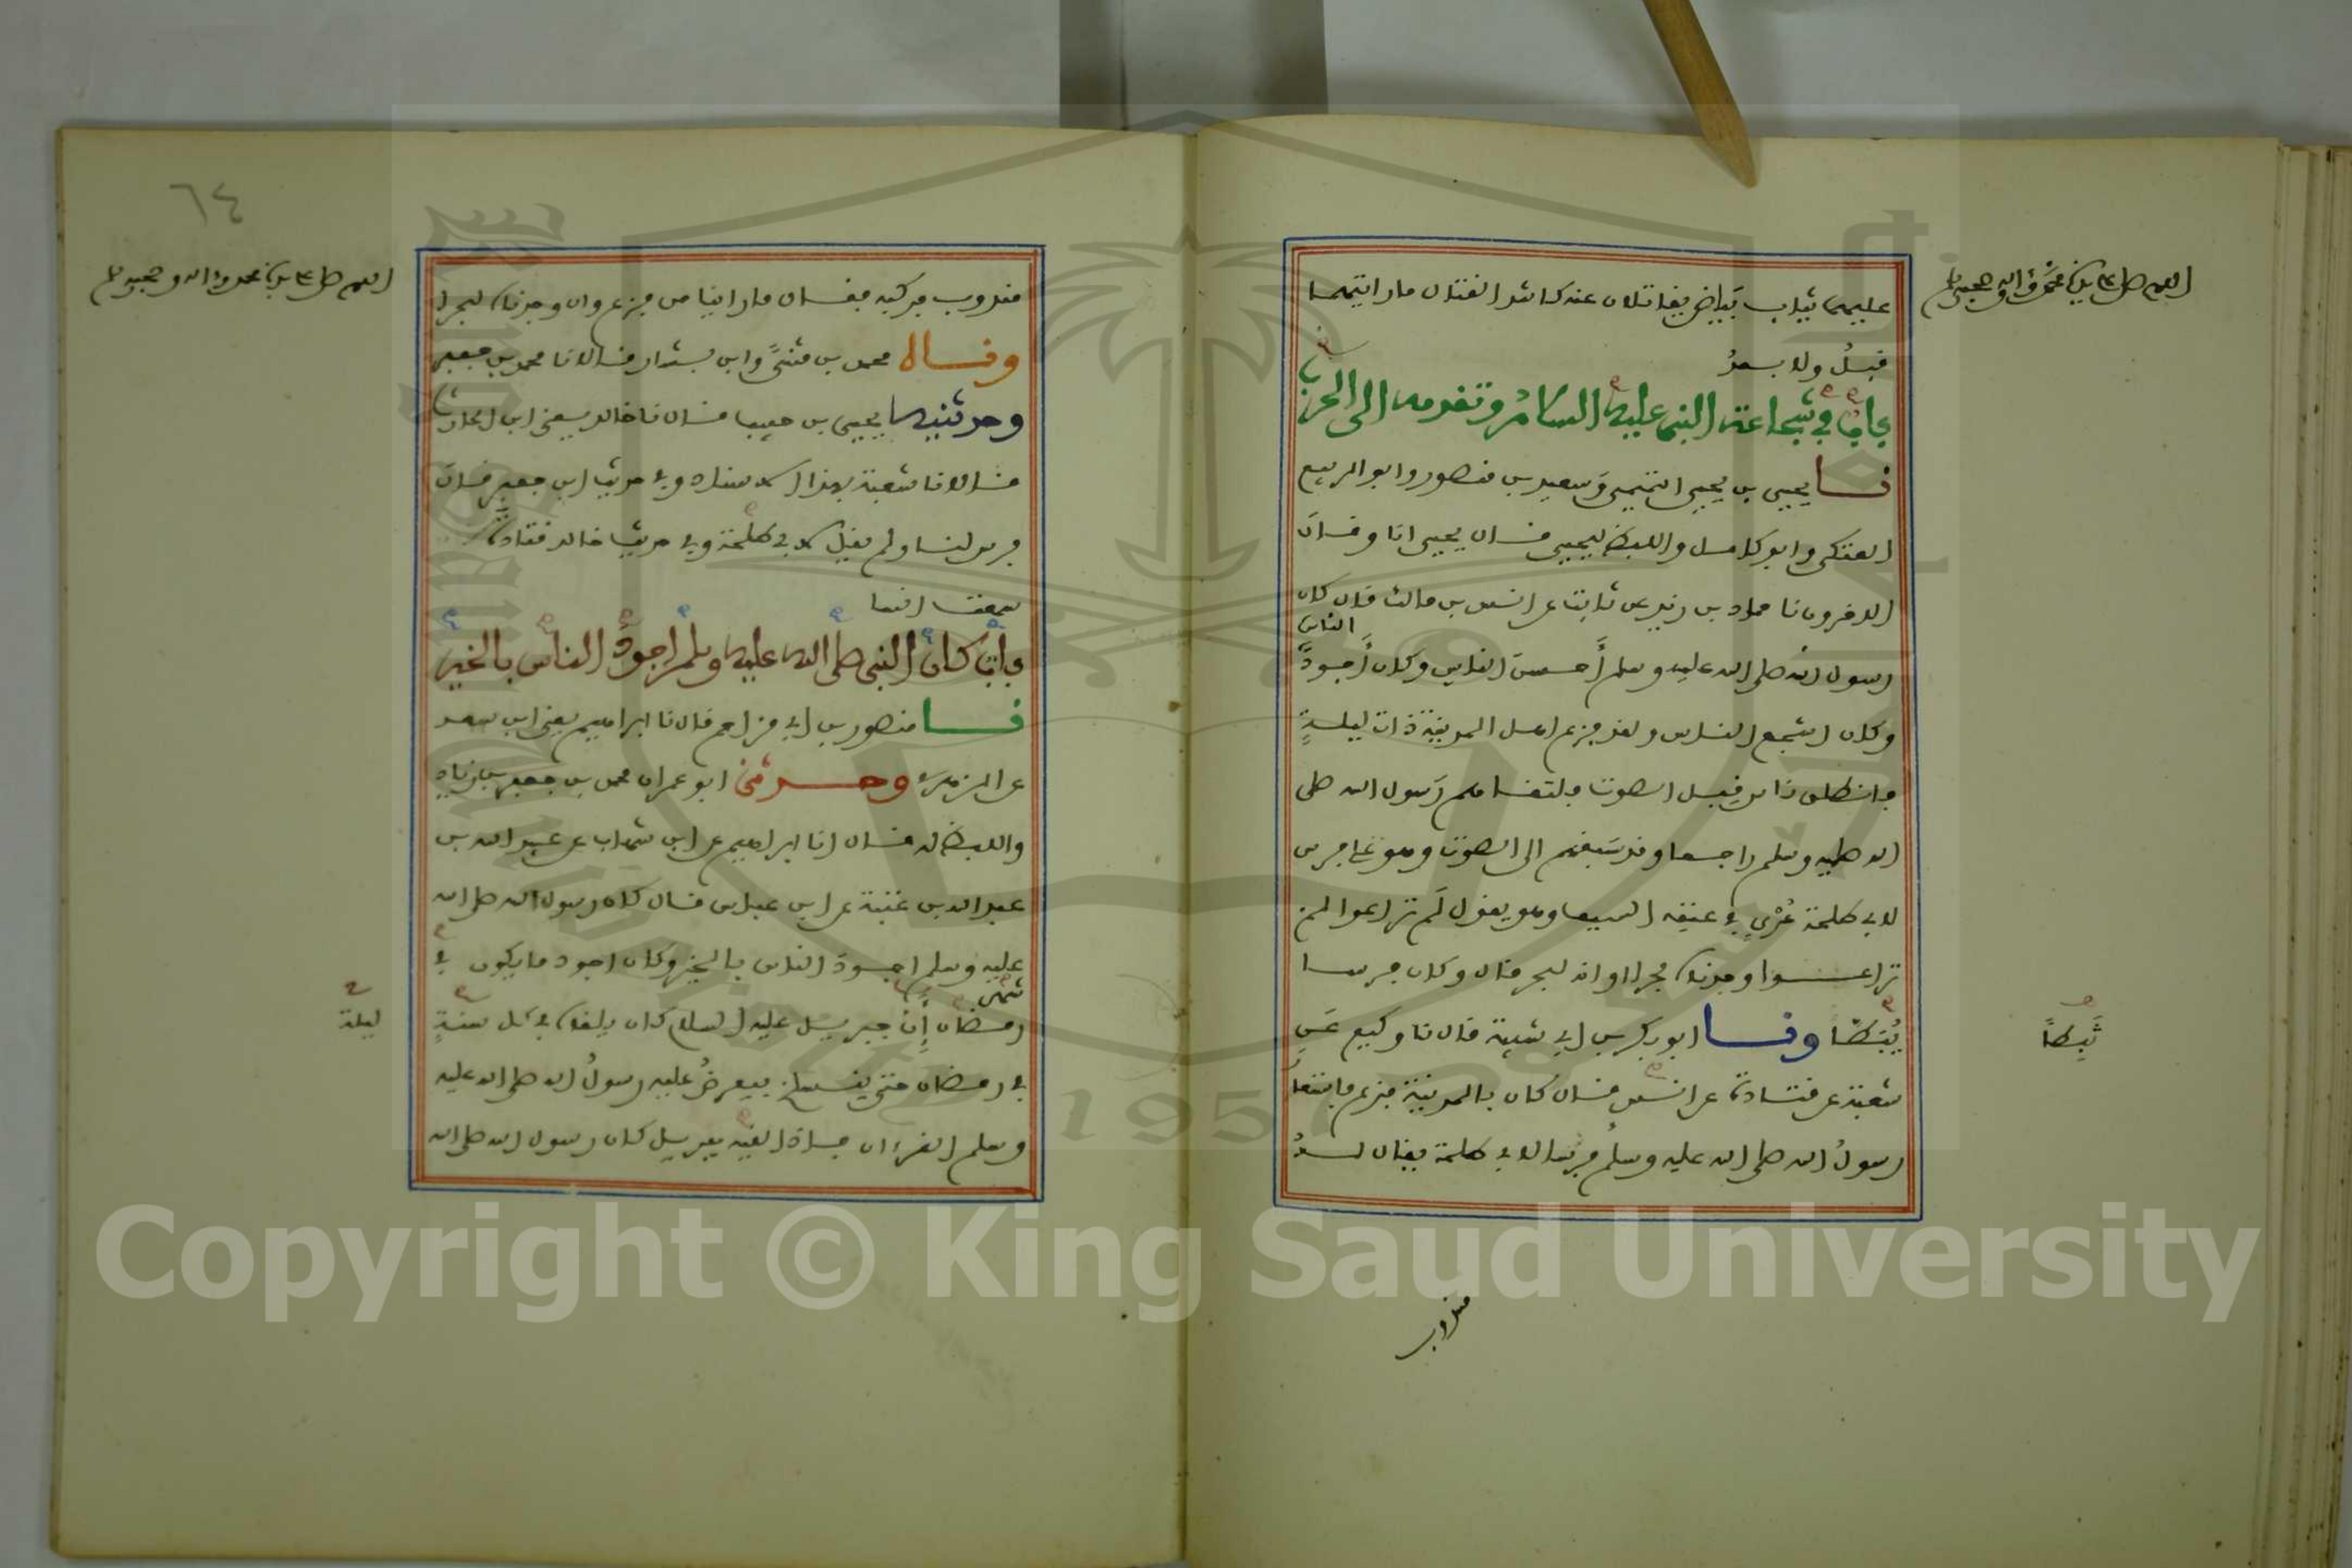 اللهم صل على سيدنا محمد وءاله وصحبه وسلم
عليهما ثياب بياض يقاتلان عنه كاشد القتال ما رايتهما
قبل ولا بعد
باب في شجاعة النبي عليه السلام وتقدمه الى الحرب
نا يحيى بن يحيى التميمي وسعيد بن منصور وابو الربيع
العتكي وابو كامل واللفظ ليحيى قال يحيى انا وقال
الاخرون نا حماد بن زيد عن ثابت عن انس بن مالك قال كان
رسول الله صلى الله عليه وسلم أحسن الناس وكان أجود
الناس
وكان اشجع الناس ولقد فزع اهل المدينة ذات ليلة
فانطلق ناس قبل الصوت فلتقاهم رسول الله صلى
الله عليه وسلم راجعا وقد سبقهم الى الصوت وهو على فرس
لابي طلحة عري في عنقه السيف وهو يقول لم تراعوا لم
تراعوا وجدناه بحرا او انه لبحر قال وكان فرسا
يُبَطَّأ ونا ابو بكر بن ابي شيبة قال نا وكيع عن
ثَبِطًا
شعبة عن قتادة عن انس قال كان بالمدينة فزع فاستعار
رسول الله صلى الله عليه وسلم فرسا لابي طلحة يقال له
مندوب
٦٤
اللهم صل على سيدنا محمد وءاله وصحبه وسلم
مندوب فركبه فقال ما راينا من فزع وان وجدناه لبحرا
وناه محمد بن مثنى وابن بشار قالا نا محمد بن جعفر
وحدثنيه يحيى بن حبيب قال نا خالد يعني ابن الحارث
قالا نا شعبة بهذا الاسناد وفي حديث ابن جعفر قال
فرس لنا ولم يقل لابي طلحة وفي حديث خالد قتادة
سمعت انسا
باب كان النبي صلى الله عليه وسلم اجود الناس بالخير
نا منصور بن ابي مزاحم قال نا ابراهيم يعني ابن سعد
عن الزهري وحدثني ابو عمران محمد بن جعفر بن زياد
واللفظ له قال انا ابراهيم عن ابن شهاب عن عبيد الله بن
عبد الله بن عتبة عن ابن عباس قال كان رسول الله صلى الله
عليه وسلم اجود الناس بالخير وكان اجود ما يكون في
شهر
رمضان إن جبريل عليه السلام كان يلقاه في كل سنة
ليلة
في رمضان حتى ينسلخ فيعرض عليه رسول الله صلى الله عليه
وسلم القرءان فاذا لقيه جبريل كان رسول الله صلى الله
Copyright © King Saud University
1957